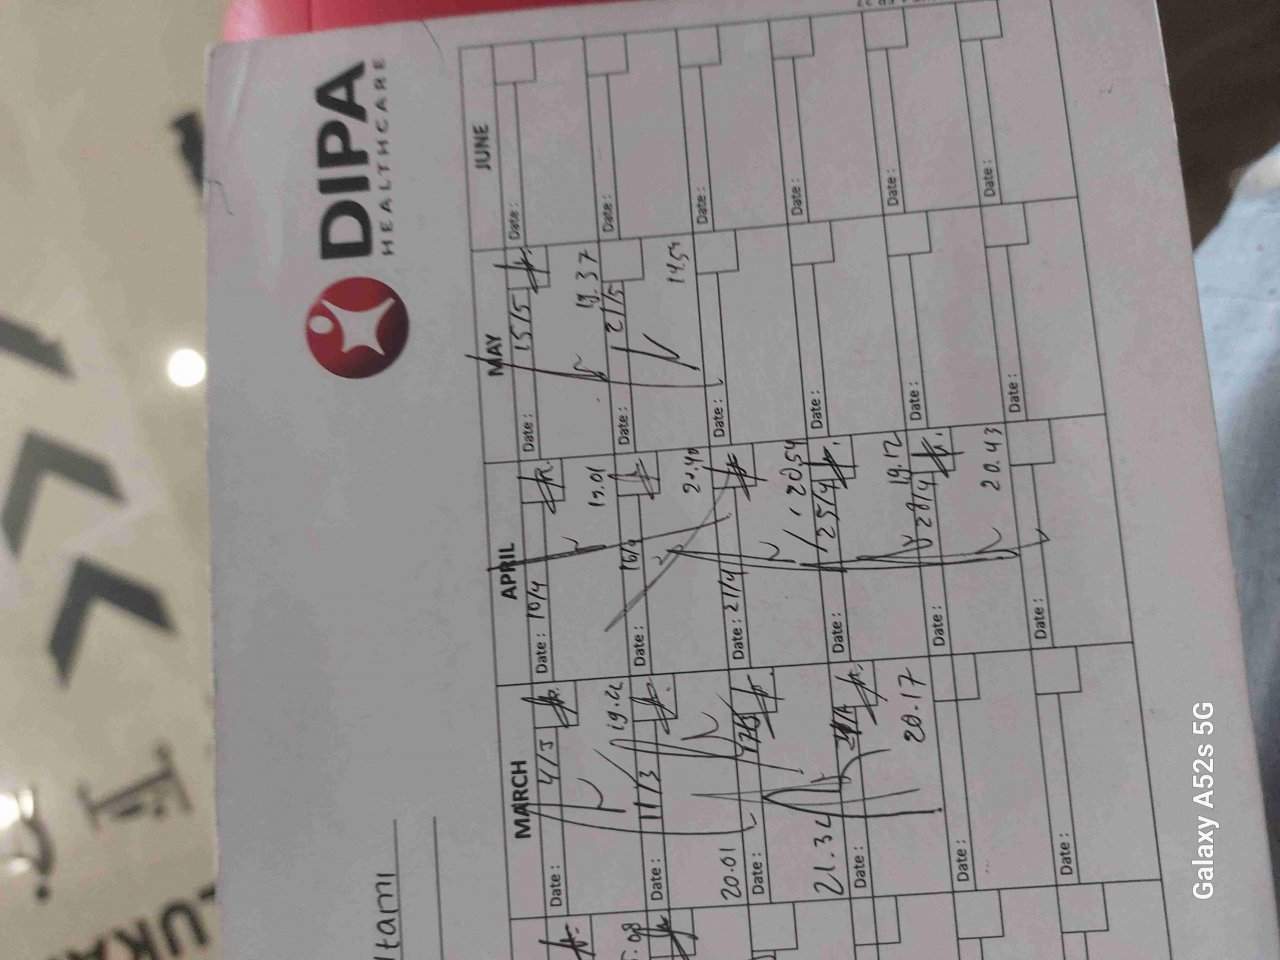 DIPA
HEALTHCARE
ltani
MARCH
Date: 4/3
Date: 11/3
20.01
Date:
21.32
Date:
20.17
Date:
Date:
APRIL
Date: 10/4
19.01
Date: 16/4
20.40
Date: 21/4
20.54
Date: 25/4
19.12
Date: 28/4
20.43
Date:
MAY
Date: 15/5
19.37
Date: 21/5
Date:
Date:
Date:
Date:
JUNE
Date:
Date:
Date:
Date:
Date:
Date:
LUKA
Galaxy A52s 5G